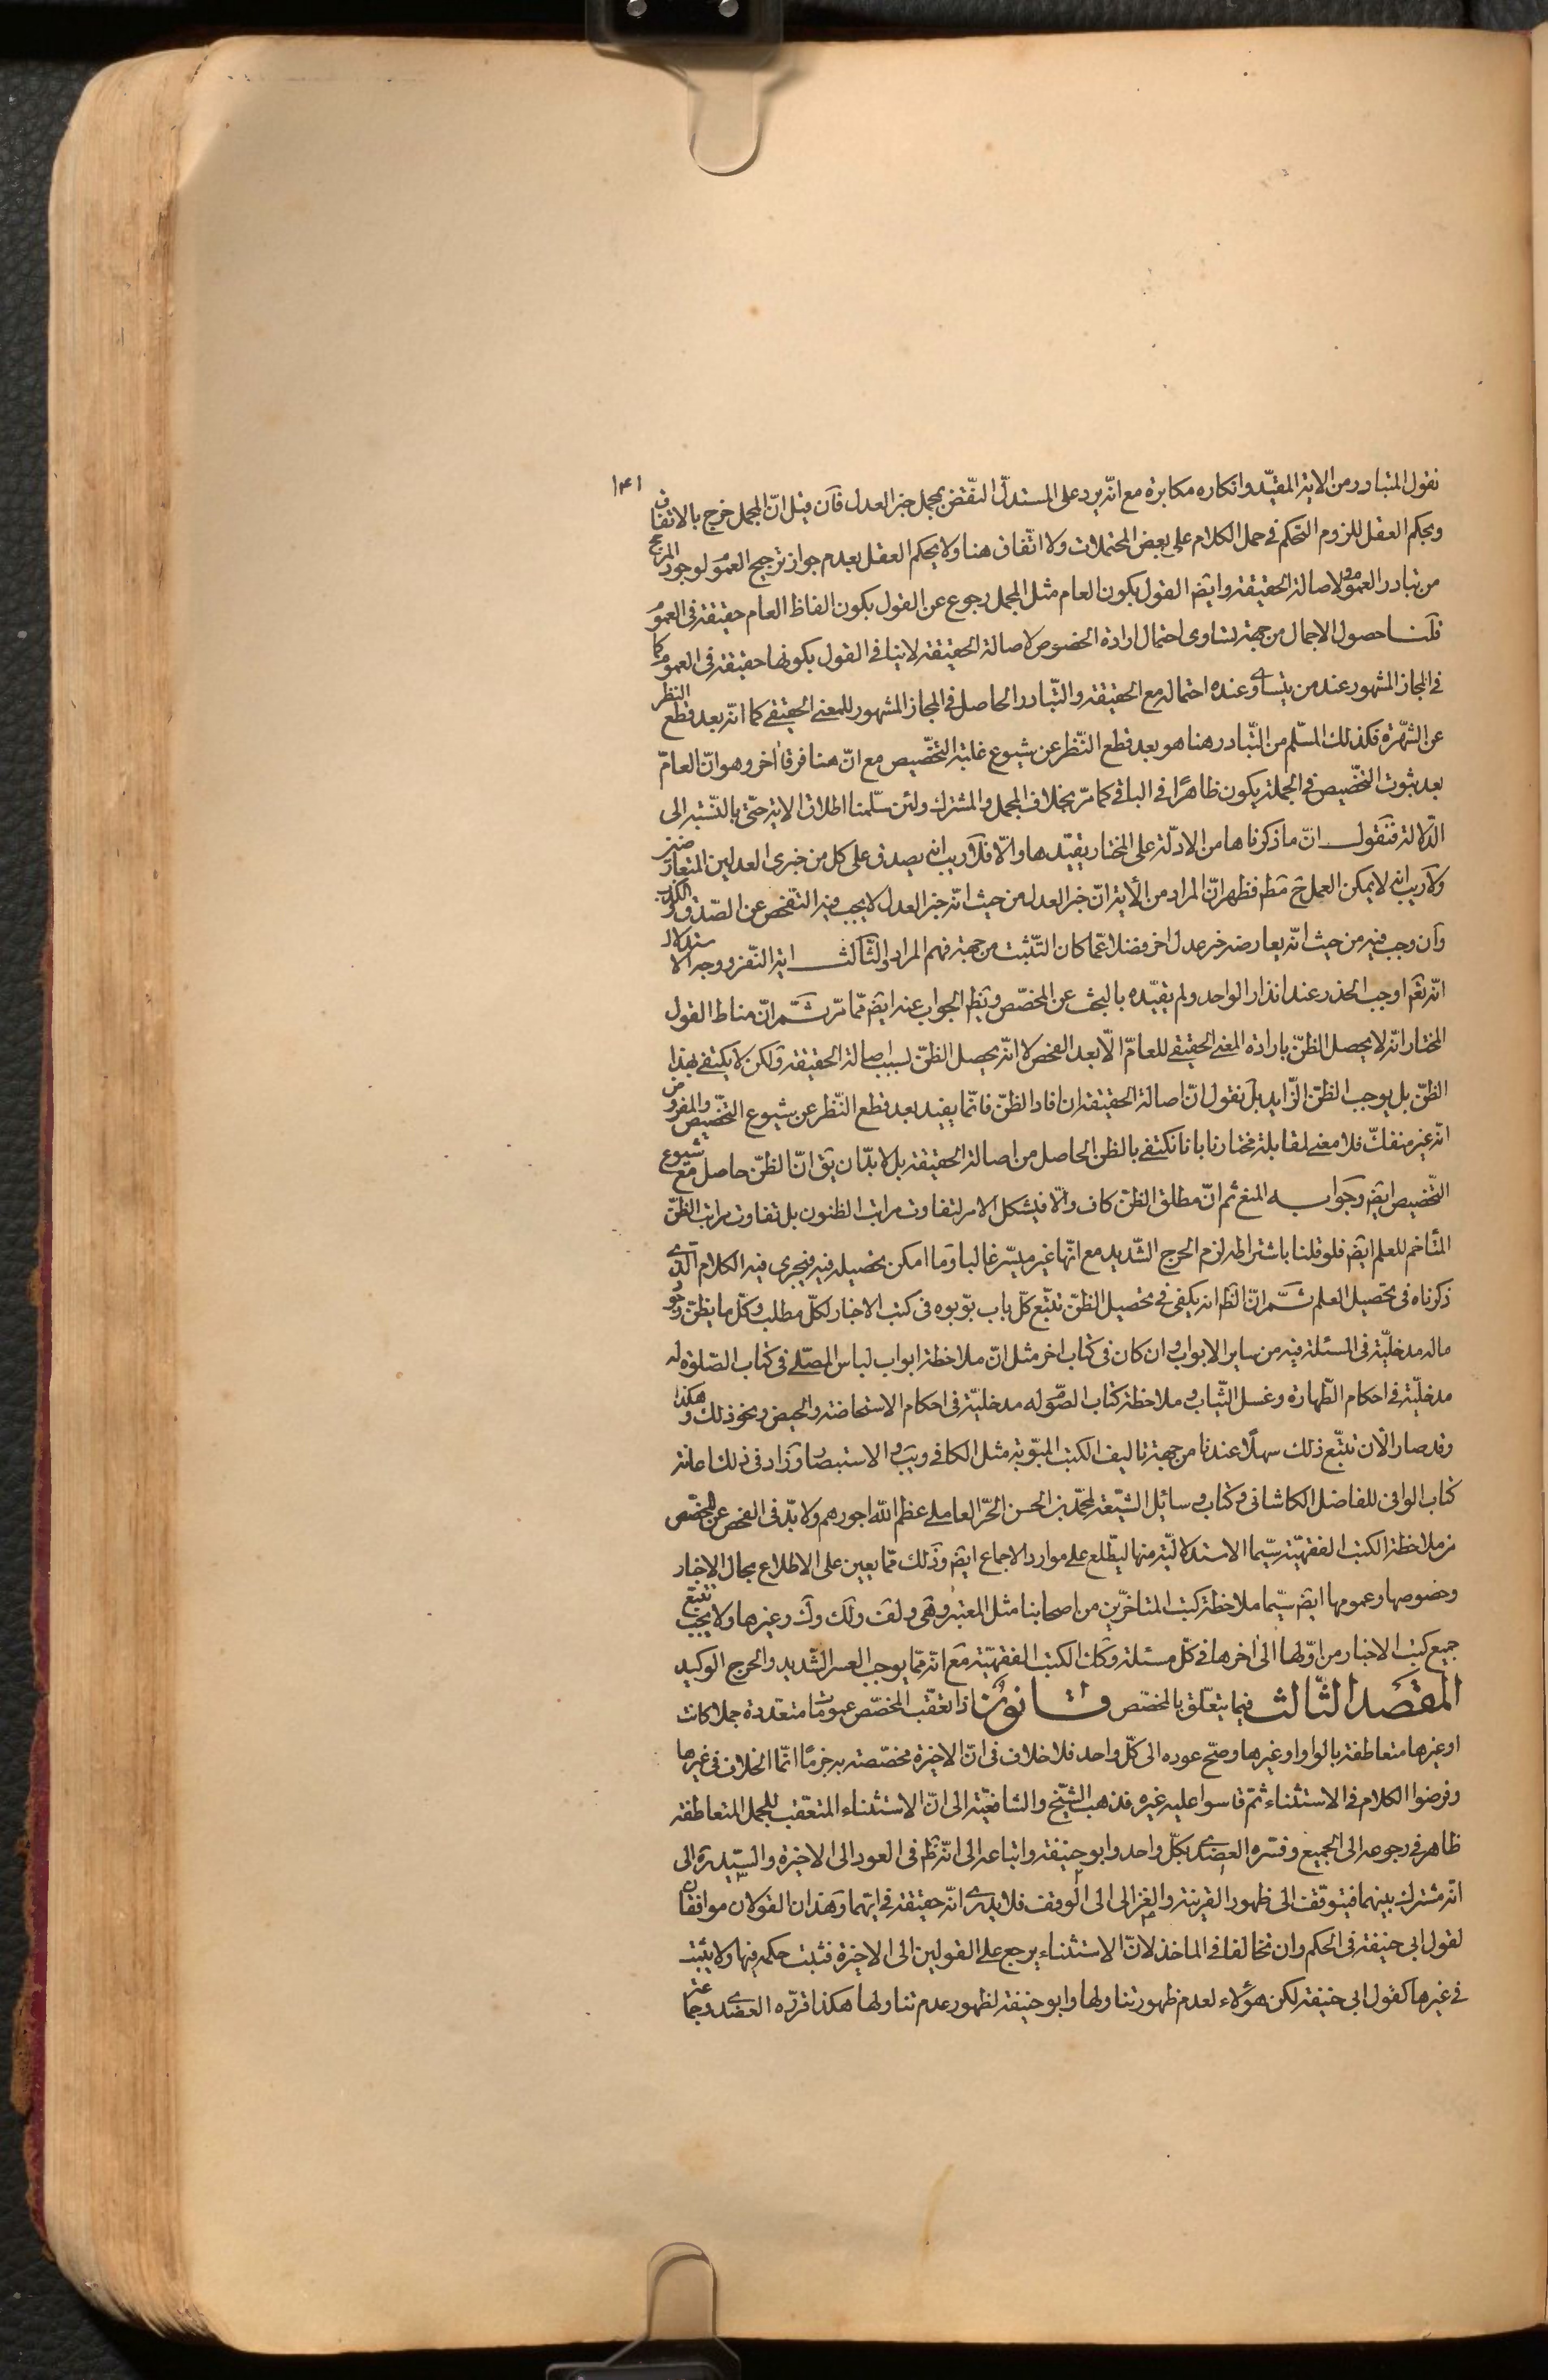 ١٤١
نقول المتبادر من الاية المقيّد وانكاره مكابرة مع انّه يرد على المستدلّ النّقض بمجمل خبر العدل فان قيل انّ المجمل خرج بالاتفاق
وبحكم العقل للزوم التحكم في حمل الكلام على بعض المحتملات ولا اتّفاق هنا ولا يحكم العقل بعدم جواز ترجيح العموم لوجود المرجح
من تبادر العموم ولاصالة الحقيقة وايضا القول بكون العام مثل المجمل رجوع عن القول بكون الفاظ العام حقيقة في العموم
قلنا حصول الاجمال من جهة تساوى احتمال ارادة الخصوص لاصالة الحقيقة لا ينافي القول بكونها حقيقة في العموم كما
في المجاز المشهور عند من يتساوى عنده احتماله مع الحقيقة والتّبادر الحاصل في المجاز المشهور للمعنى الحقيقي كما انّه بعد قطع النظر
عن الشّهرة فكذلك المسلّم من التّبادر هنا هو بعد قطع النّظر عن شيوع غلبة التخّصيص مع انّ هنا فرقا اخر وهو انّ العامّ
بعد ثبوت التخّصيص في الجملة يكون ظاهرًا في الباقي كما مرّ بخلاف المجمل والمشترك ولئن سلّمنا اطلاق الاية حتّى بالنّسبة الى
الدّلالة فنقول انّ ما ذكرناها من الادلّة على المختار يقيّدها والّا فلا ريب انه يصدق على كل من خبرى العدلين المتعارضين
ولا ريب انه لا يمكن العمل ح مط فظهر انّ المراد من الأية انّ خبر العدل من حيث انّه خبر العدل لا يجب فيه التفحّص عن الصّدق والكذب
وان وجب فيه من حيث انّه يعارضه خبر عدل اخر فضلا عمّا كان التّثبت من جهة فهم المراد والثّالث اية النّفر ووجه الاستدلال
انّه تعم اوجب الحذر عند انذار الواحد ولم يقيّده بالبحث عن المخصّص ويظهر الجواب عنه ايضا ممّا مرّ ثمّ انّ مناط القول
المختار انّه لا يحصل الظنّ بارادة المعنى الحقيقي للعامّ الّا بعد الفحص لا انّه يحصل الظنّ بسبب اصالة الحقيقة ولكن لا يكتفى بهذا
الظنّ بل يوجب الظنّ الزّايد بل نقول انّ اصالة الحقيقة ان افاد الظنّ فانّما يفيد بعد قطع النّظر عن شيوع التخّصيص والمفروض
انّه غير منفكّ فلا معنى لمقابلة مختارنا بانا نكتفي بالظن الحاصل من اصالة الحقيقة بل لا بدّ ان يق انّ الظنّ حاصل مع شيوع
التّخصيص ايضا وجوابه المنع ثم انّ مطلق الظنّ كاف والّا فيشكل الامر لتفاوت مراتب الظنون بل تفاوت مراتب الظنّ
المتاخم للعلم ايضا فلو قلنا باشتراطه لزم الحرج الشّديد مع انّها غير ميسّر غالبا وما امكن تحصيله فيه فيجرى فيه الكلام الّذى
ذكرناه في تحصيل العلم ثمّ انّ الظ انه يكفى في تحصيل الظنّ تتبّع كلّ باب بوّبوه في كتب الاخبار لكلّ مطلب وكلّ ما يظنّ وجود
ماله مدخليّة في المسئلة فيه من ساير الابواب وان كان في كتاب اخر مثل انّ ملاحظة ابواب لباس المصّلى في كتاب الصّلوة له
مدخليّة في احكام الطّهارة وغسل الثّياب وملاحظة كتاب الصّوم له مدخليّة في احكام الاستحاضة والحيض ونحو ذلك وهكذا
وقد صار الان تتبّع ذلك سهلًا عندنا من جهة تاليف الكتب المبّوبة مثل الكافي ويب والاستبصار وزاد في ذلك اعانة
كتاب الوافى للفاضل الكاشانى وكتاب وسائل الشّيعة لمحمّد بن الحسن الحّر العاملى عظم الله اجورهم ولا بدّ في الفحص عن المخصّص
من ملاحظة الكتب الفقهيّة سيّما الاستدلاليّة منها ليطّلع على موارد الاجماع ايضا وذلك ممّا يعين على الاطلاع بحال الاخبار
وخصوصها وعمومها ايضا سيّما ملاحظة كتب المتاخرّين من اصحابنا مثل المعتبر وهى ولف ولك وك وغيرها ولا يجب تتبع
جميع كتب الاخبار من اوّلها الى اخرها في كلّ مسئلة وكك الكتب الفقهيّة مع انّه ممّا يوجب العسر الشّديد والحرج الوكيد
المقصد الثّالث فيما يتعّلق بالمخصّص قانون اذا تعقّب المخصّص عمومًا متعدّدة جملا كانت
او غيرها متعاطفة بالواو او غيرها وصحّ عوده الى كلّ واحد فلا خلاف في انّ الاخيرة مخصّصة به جزمًا انّما الخلاف في غيرها
وفرضوا الكلام في الاستثناء ثمّ قاسوا عليه غيره فذهب الشّيخ والشافعيّة الى انّ الاستثناء المتعّقب للجمل المتعاطفة
ظاهر في رجوعه الى الجميع وفسّره العضدى بكلّ واحد وابو حنيفة واتباعه الى انّه ظ في العود الى الاخيرة والسّيد ره الى
انّه مشترك بينهما فيتوقّف الى ظهور القرينة والغزالى الى الوقف فلا يدرى انّه حقيقة في ايّهما وهذان القولان موافقان
لقول ابى حنيفة في الحكم وان تخالفا في الماخذ لانّ الاستثناء يرجع على القولين الى الاخيرة فثبت حكمه فيها ولا يثبت
في غيرها كقول ابى حنيفة لكن هؤلاء لعدم ظهور تناولها وابو حنيفة لظهور عدم تناولها هكذا قرّره العضدى وجماعة